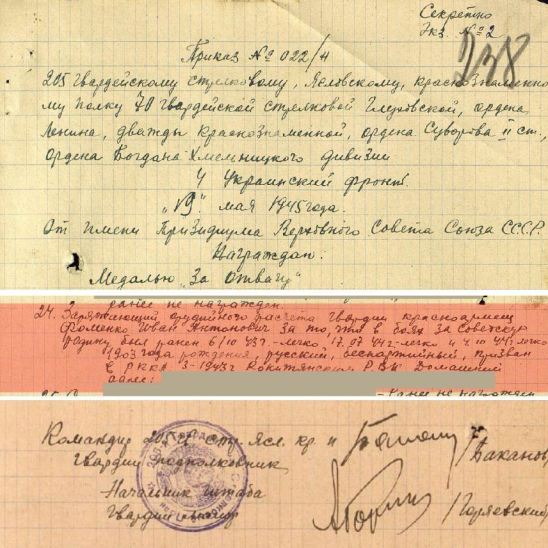 Секретно
Экз. № 2
238
Приказ № 022/Н
205 гвардейскому стрелковому, Ясловскому, краснознаменно-
му полку 70 гвардейской стрелковой Глуховской, ордена
Ленина, дважды краснознаменной, ордена Суворова II ст.,
Ордена Богдана Хмельницкого дивизии
4 Украинский фронт.
"19" мая 1945 года.
От имени Призидиума Верховного Совета Союза СССР.
Награждаю:
Медалью "За отвагу"
ранее не награжден.
24. Заряжающий орудийного расчета гвардии красноармеец
Фоменко Иван Антонович за то, что в боях за Советскую
родину был ранен 6/10 43г.-легко 17.07 44г-легко и 4.111 44г легко
1903 года рождения, русский, беспартийный, призван
в РККА 3-1943г Рокитянским РВК Домашний
адрес:
Ранее не награжден
Командир 205 гв. стр. Ясл. кр. п
/Баканов
Гвардии подполковник
Начальник штаба
Гвардии
/Горяевский